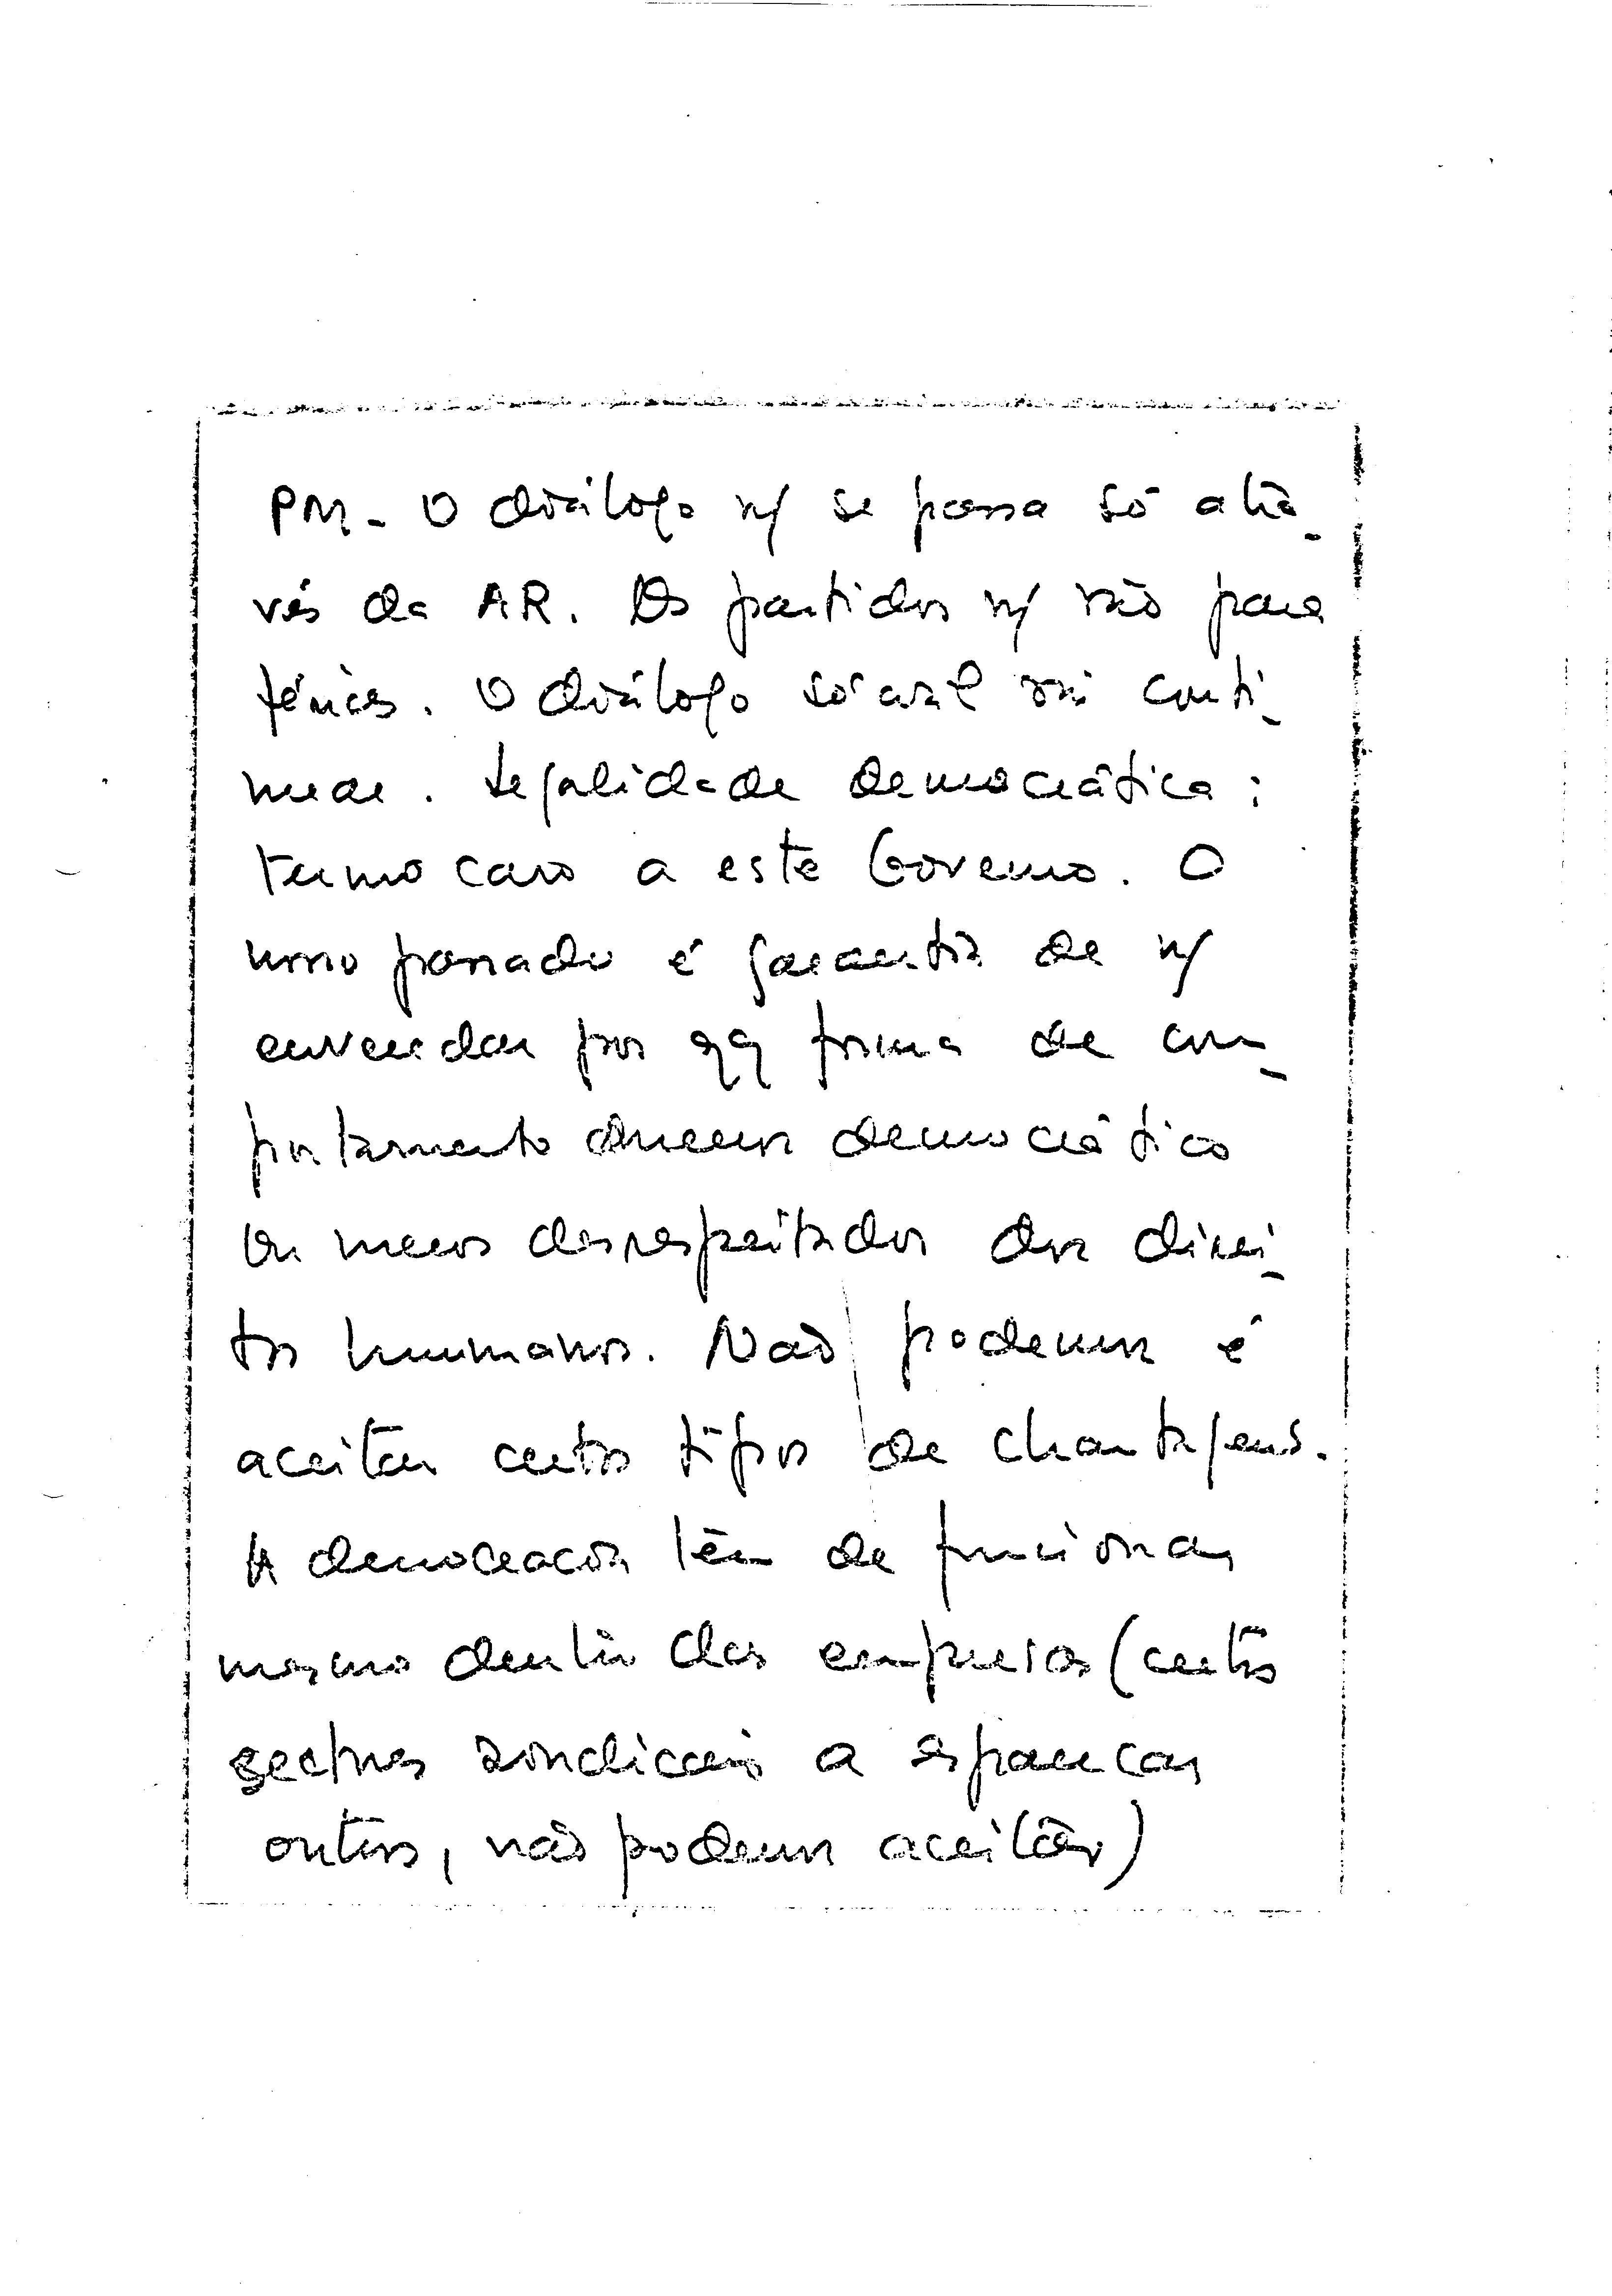 PM - O diálogo ñ/ se passa só atra-
vés da AR. Os partidos ñ/ vão para
férias. O diálogo social vai conti-
nuar. Legalidade democrática:
termo caro a este Governo. O
nosso passado é garantia de ñ/
enveredar por qq forma de com-
portamento menos democrático
ou menos desrespeitador dos direi-
tos humanos. Não podemos é
aceitar certos tipos de chantagens.
A democracia tem de funcionar
mesmo dentro das empresas (certos
sectores sindicais a espancar
outros, não podemos aceitar)